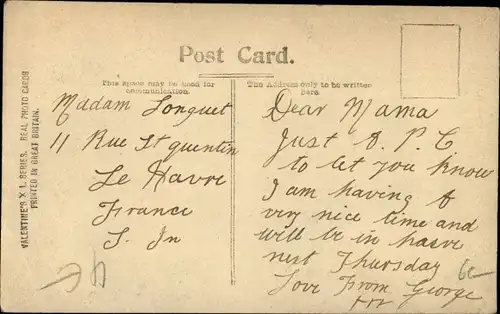 Post Card.
This space may be used for
communication.
The Address only to be written
here.
VALENTINE'S X L SERIES. REAL PHOTO CARDS
PRINTED IN GREAT BRITAIN.
Madam Longuet
11 Rue St quentin
Le Havre
France
S. In
Dear Mama
Just A. P. C.
to let you know
I am having A
very nice time and
will be in havre
next Thursday
Love From George
xxx